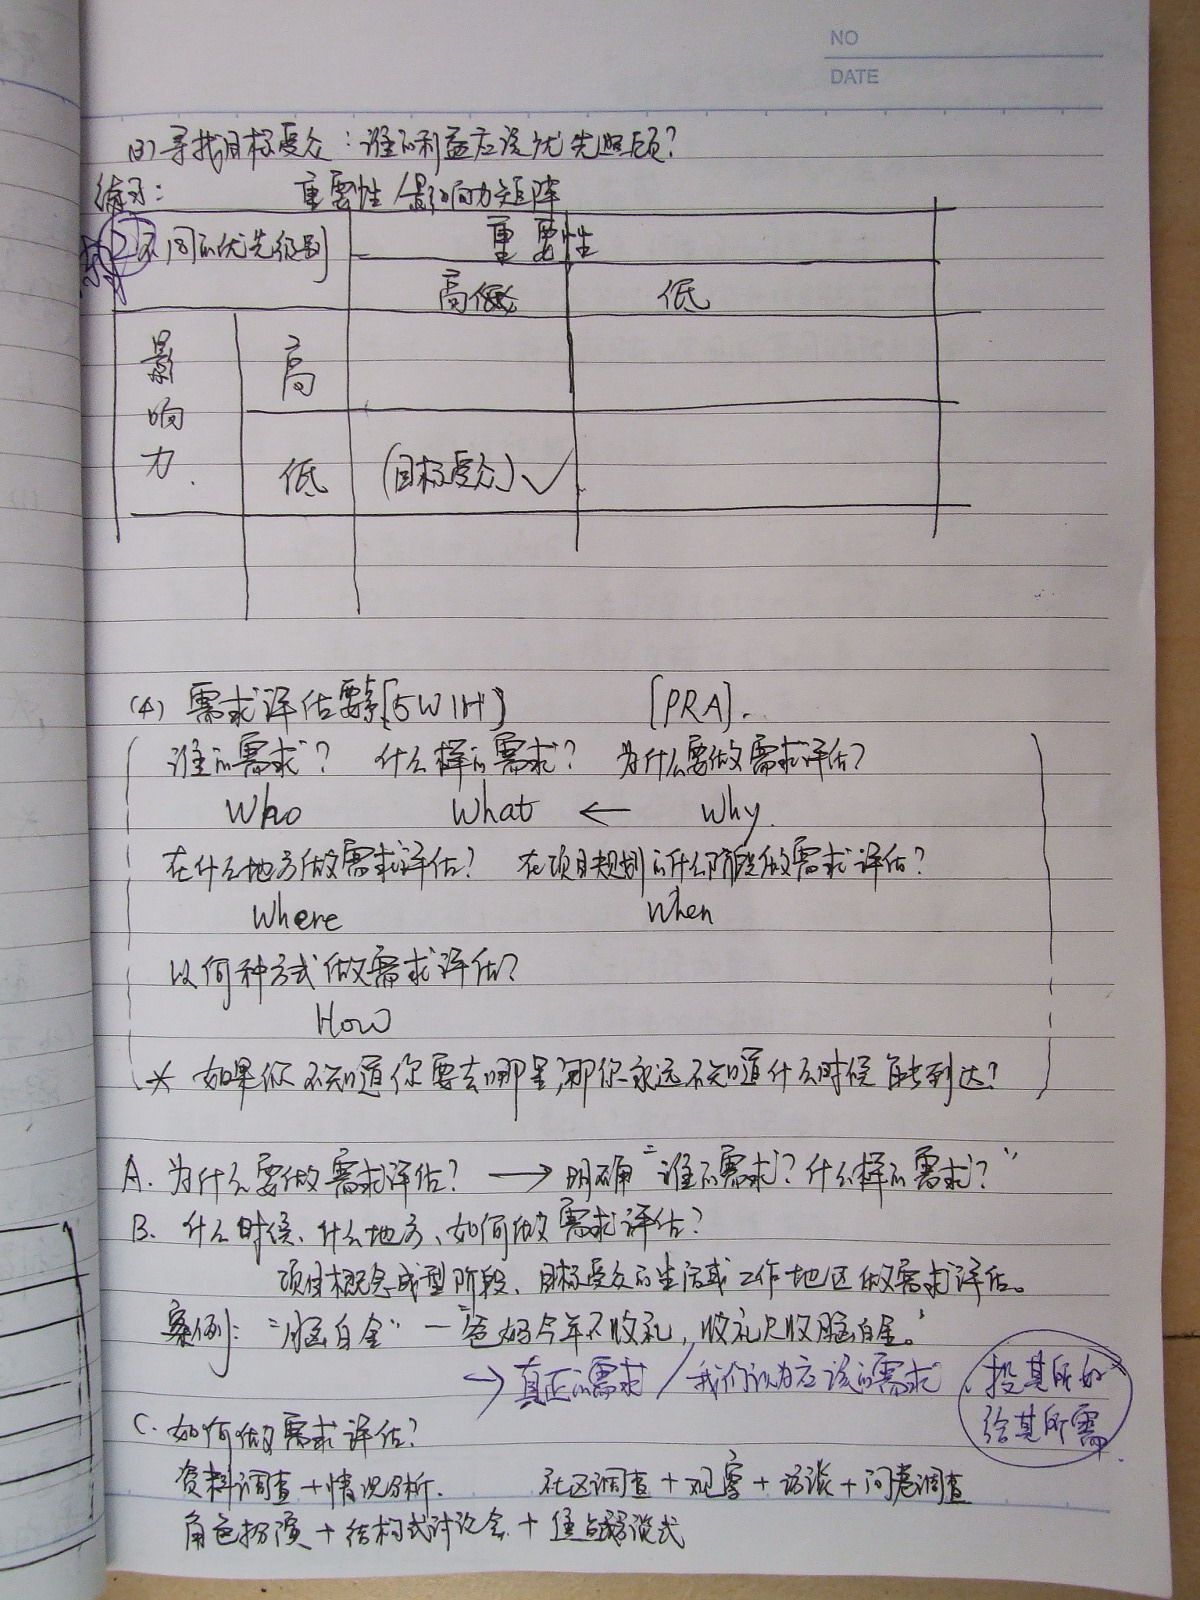 NO
DATE
(3) 寻找目标受众：谁的利益应该优先照顾？
练习： 重要性/影响力矩阵
不同的优先级别 重要性
高 低
影响力 高
低 (目标受众) ✓
(4) 需求评估要素[5W1H] [PRA].
谁的需求？ 什么样的需求？ 为什么要做需求评估？
Who What ← Why.
在什么地方做需求评估？ 在项目规划的什么阶段做需求评估？
Where When
以何种方式做需求评估？
How
* 如果你不知道你要去哪里，那你永远不知道什么时候能到达？
A. 为什么要做需求评估？ → 明确“谁的需求？什么样的需求？”
B. 什么时候、什么地方、如何做需求评估？
项目概念成型阶段、目标受众的生活或工作地区做需求评估。
案例：“脑白金”—“爸妈今年不收礼，收礼只收脑白金。”
→ 真正的需求 / 我们认为应该的需求
投其所好
给其所需
C. 如何做需求评估？
资料调查+情况分析. 社区调查+观察+访谈+问卷调查
角色扮演+结构式讨论会+